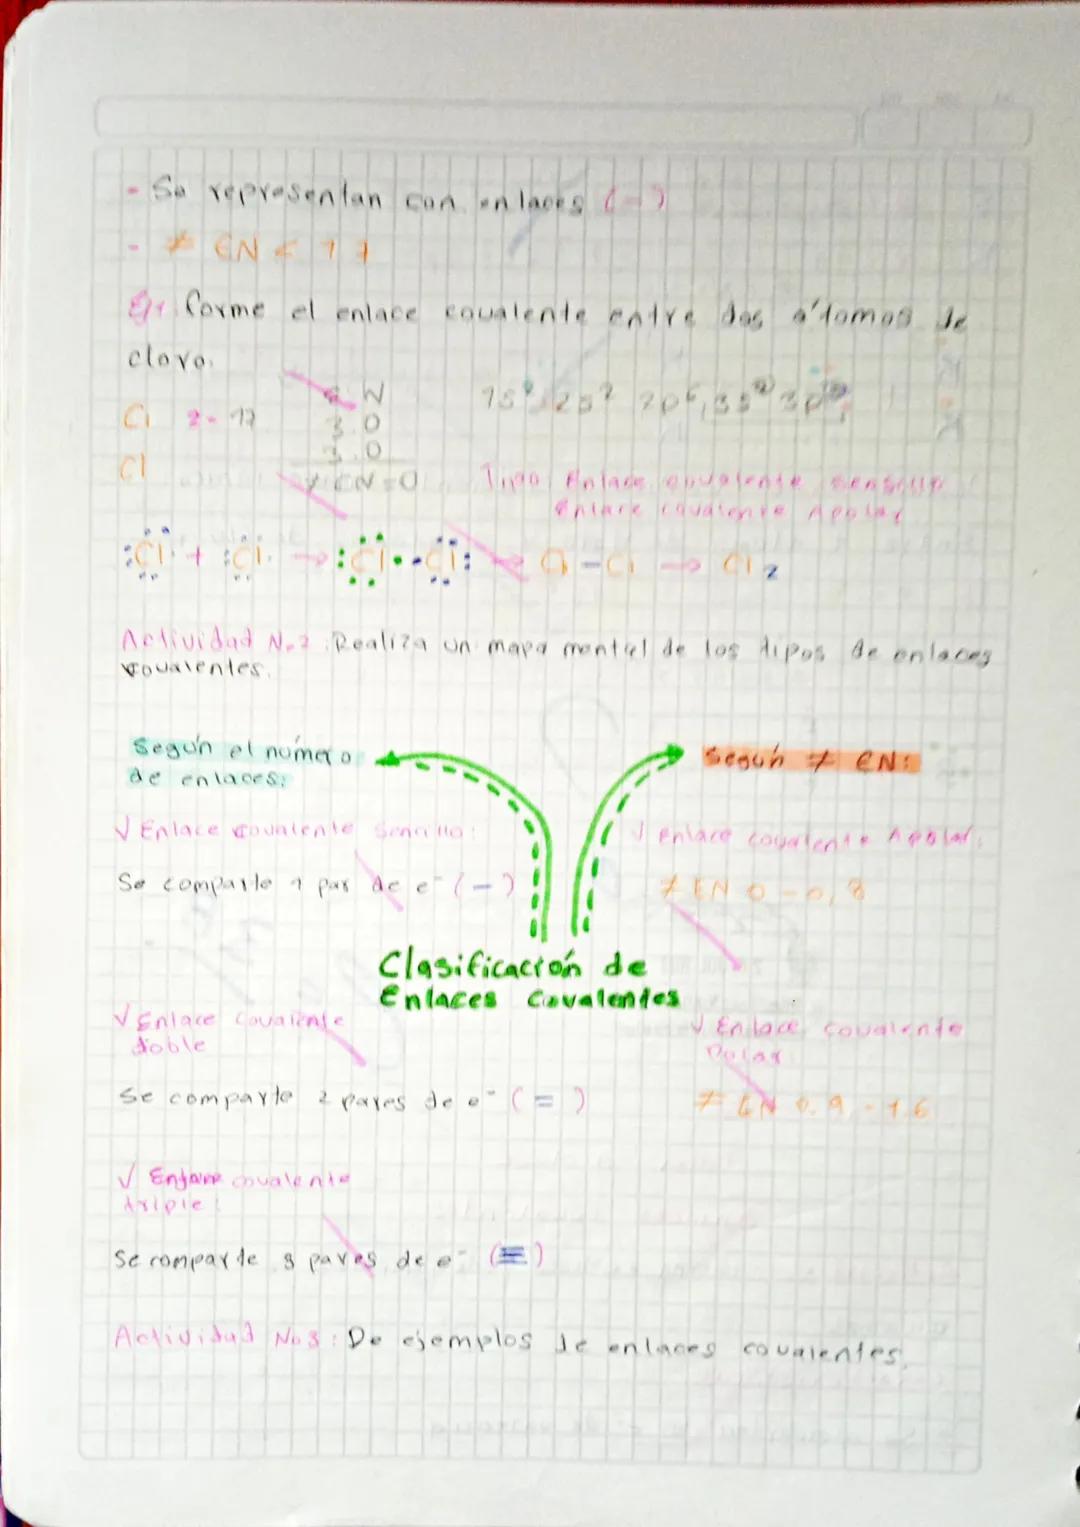 - Se representan con enlaces (-)
- ≠ EN < 1.7
Ej: forme el enlace covalente entre dos átomos de
cloro.
EN
Cl z= 17 3.0 1s² 2s² 2p⁶, 3s² 3p⁵
3.0
Cl ≠ EN=0 Tipo: Enlace covalente sencillo
Enlace covalente Apolar
:Cl· + :Cl· → :Cl··Cl: → Cl-Cl → Cl2
Actividad No2: Realiza un mapa mental de los tipos de enlaces
covalentes.
Según el número
de enlaces:
√ Enlace covalente Sencillo:
Se comparte 1 par de e⁻ (-)
√ Enlace covalente
doble
Se comparte 2 pares de e⁻ (=)
√ Enlace covalente
triple:
Se comparte 3 pares de e⁻ (≡)
Clasificación de
Enlaces Covalentes
Según ≠ EN:
√ Enlace covalente Apolar:
≠ EN 0 - 0,8
√ Enlace covalente
Polar
≠ EN 0.9 - 1.6
Actividad No3: De ejemplos de enlaces covalentes.